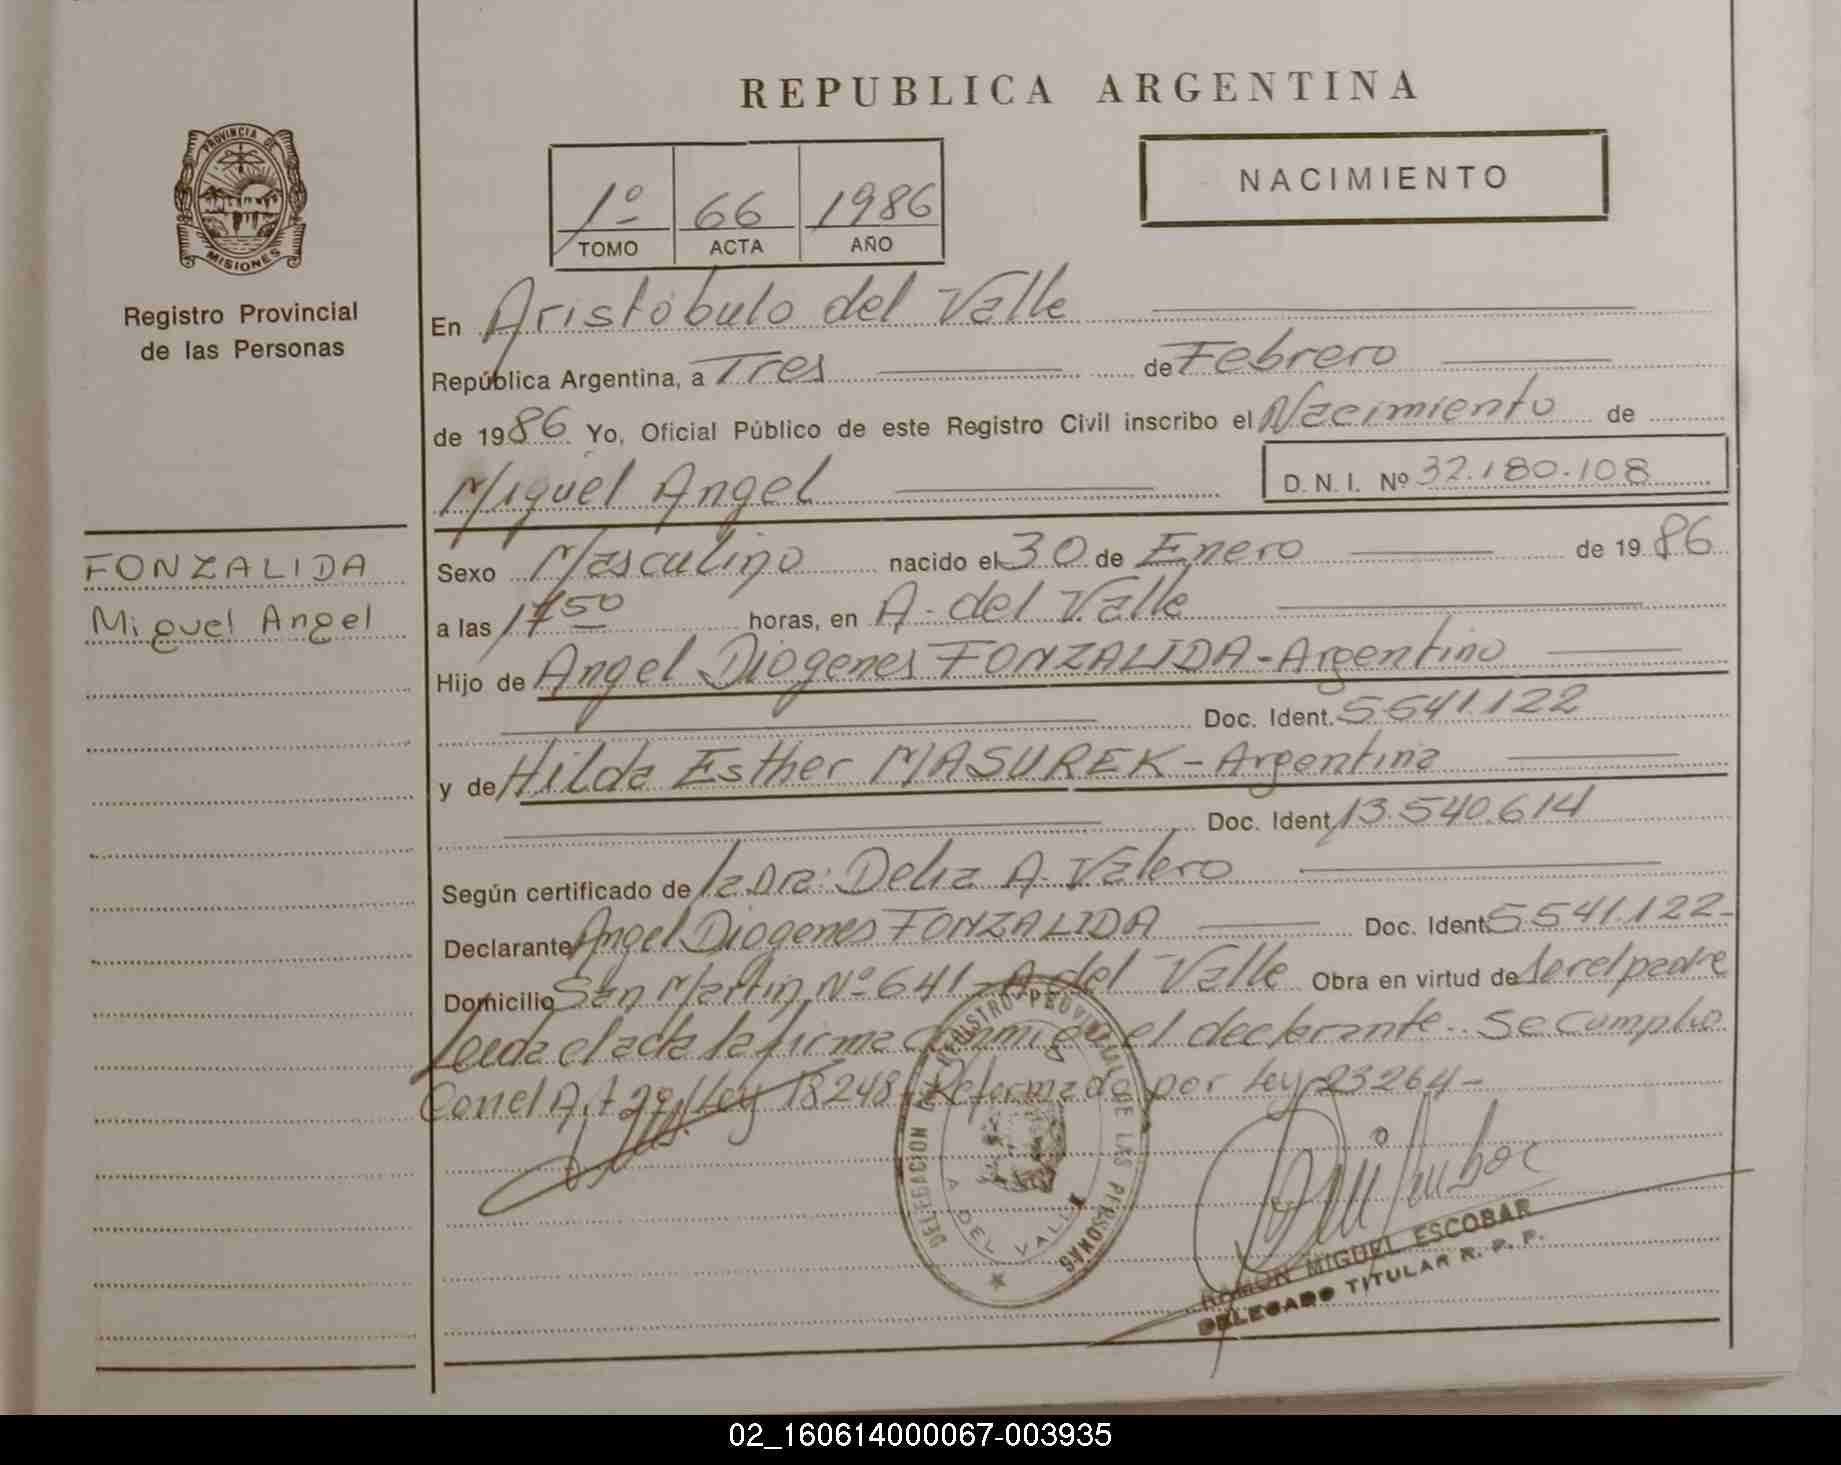 REPUBLICA ARGENTINA
PROVINCIA DE
MISIONES
Registro Provincial
de las Personas
1º 66 1986
TOMO ACTA AÑO
NACIMIENTO
En Aristóbulo del Valle
República Argentina, a Tres de Febrero
de 1986 Yo, Oficial Público de este Registro Civil inscribo el Nacimiento de
Miguel Angel
D.N.I. Nº 32.180.108
FONZALIDA
Miguel Angel
Sexo Masculino nacido el 30 de Enero de 1986
a las 1750 horas, en A. del Valle
Hijo de Angel Diogenes FONZALIDA - Argentino
Doc. Ident. 5541.122
y de Hilda Esther MASUREK - Argentina
Doc. Ident. 13.540.614
Según certificado de la Dra: Delia A. Valero
Declarante Angel Diogenes FONZALIDA Doc. Ident. 5541.122-
Domicilio San Martin Nº 641 - A del Valle Obra en virtud de ser el padre
Leida el acta la firma conmigo el declarante.. Se cumplio
Con el Art 2º Ley 18248 Reformado por Ley 23264 -
DELEGACION DEL REGISTRO PROVINCIAL DE LAS PERSONAS
A DEL VALLE
RAMON MIGUEL ESCOBAR
DELEGADO TITULAR R. P. P.
02_160614000067-003935